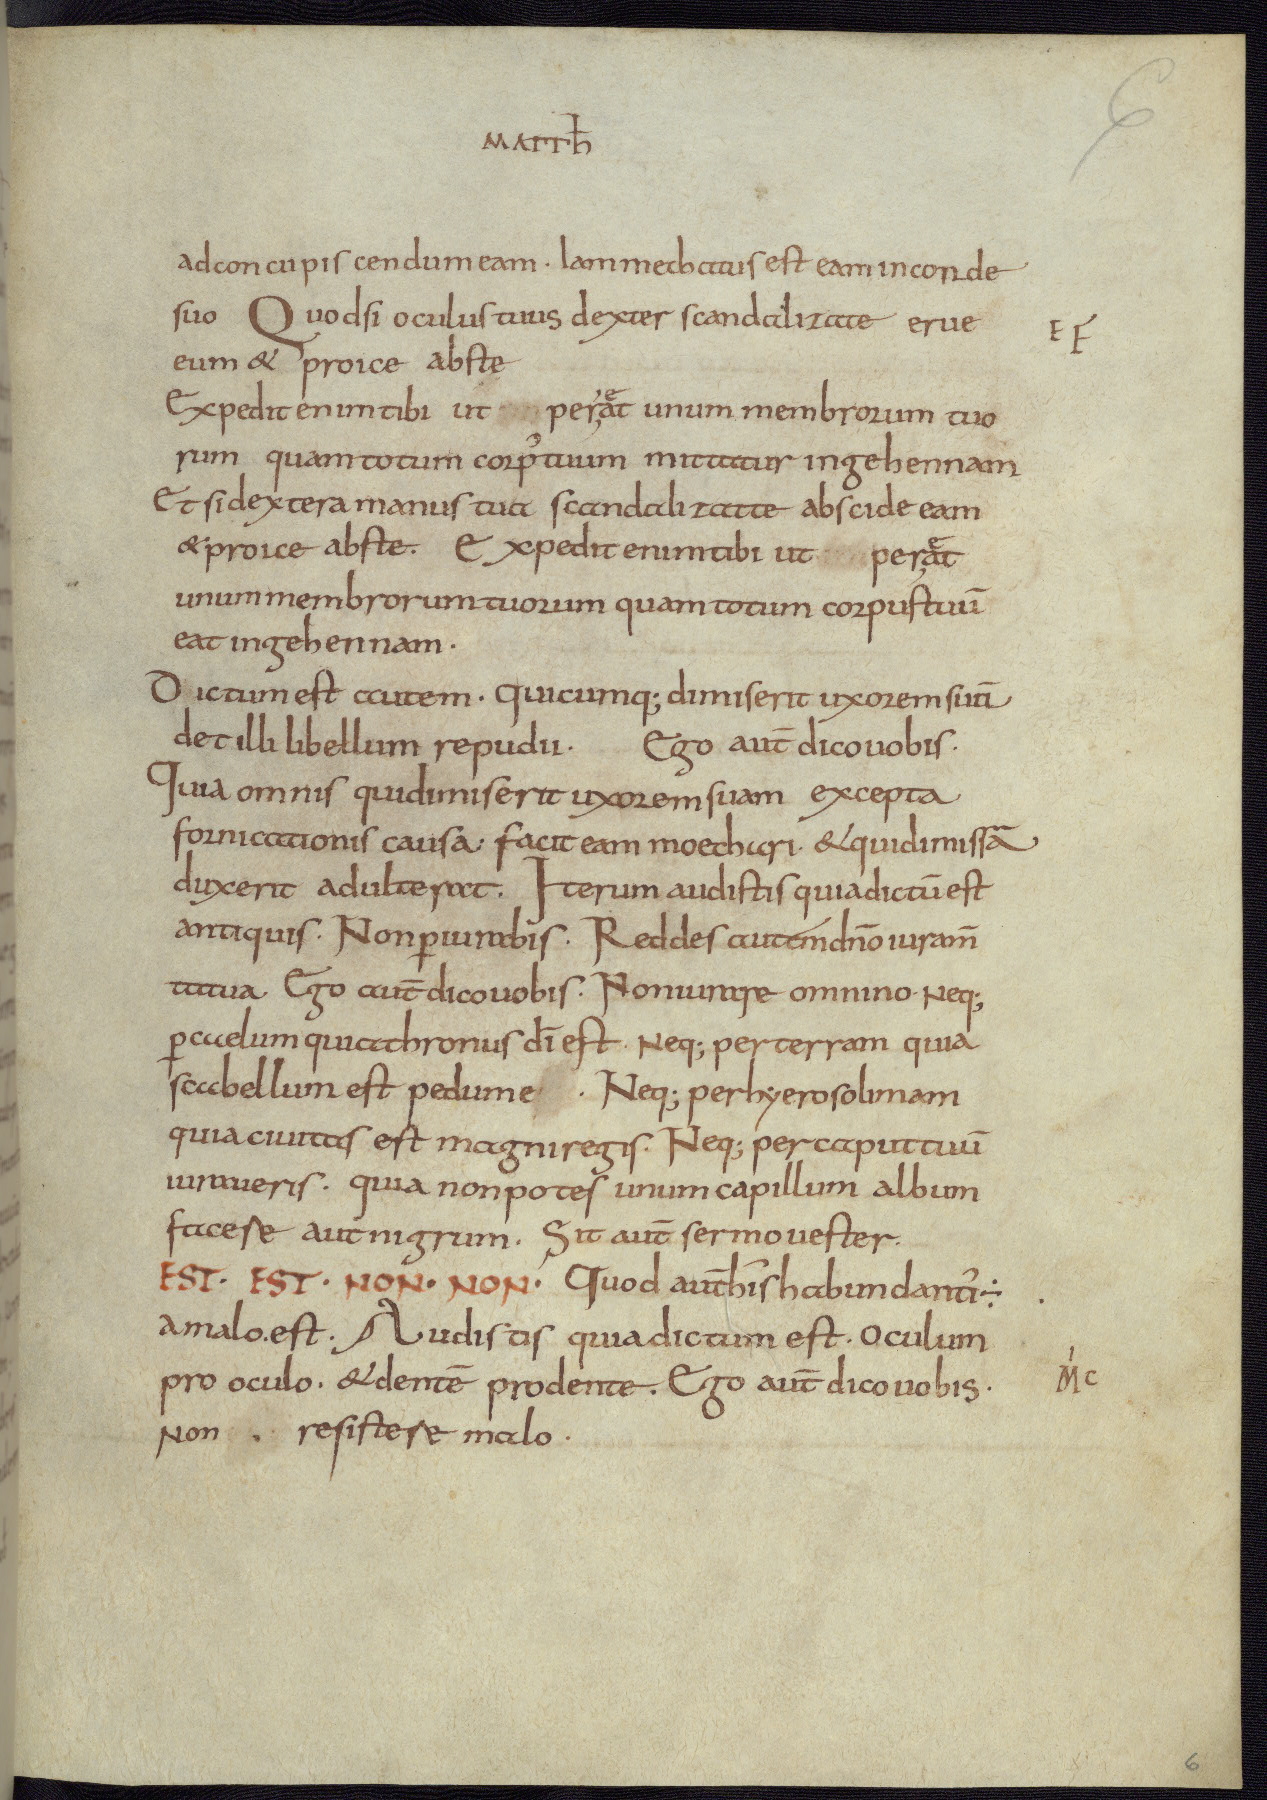 MATTħ
6
adconcupiscendumeam · Iam mechatus est eam incorde
suo Quodsi oculus tuus dexter scandalizat te erue
EF
eum & proice abste
Expedit enim tibi ut pereat unum membrorum tuo
rum quam totum corp' tuum mittatur ingehennam
Et si dextera manus tua scandalizat te abscide eam
& proice abste. Expedit enim tibi ut pereat
unum membrorum tuorum quam totum corpus tuū
eat ingehennam ·
Dictum est autem · Quicumq; dimiserit uxorem suā
det illi libellum repudii · Ego aut̄ dico uobis ·
Quia omnis qui dimiserit uxorem suam excepta
fornicationis causa · facit eam moechari · & qui dimissā
duxerit adulterat . Iterum audistis quia dictū est
antiquis · Non p̱iurabis · Reddes autem dn̄o iuram̄
ta tua Ego aut̄ dico uobis · Non iurare omnino · Neq;
p̱ caelum quia thronus dī est · Neq; per terram quia
scabellum est pedum e · Neq; per hyerosolimam
quia ciuitas est magni regis · Neq; per caput tuū
iuraueris · quia non potes unum capillum album
facere aut nigrum · Sit aut̄ sermo uester ·
EST · EST · NON · NON · Quod aut̄ his habundanti' ÷
amalo est · Audistis quia dictum est · Oculum
pro oculo · & dentē pro dente . Ego aut̄ dico uobis ·
M̓c
Non . resistere malo ·
6